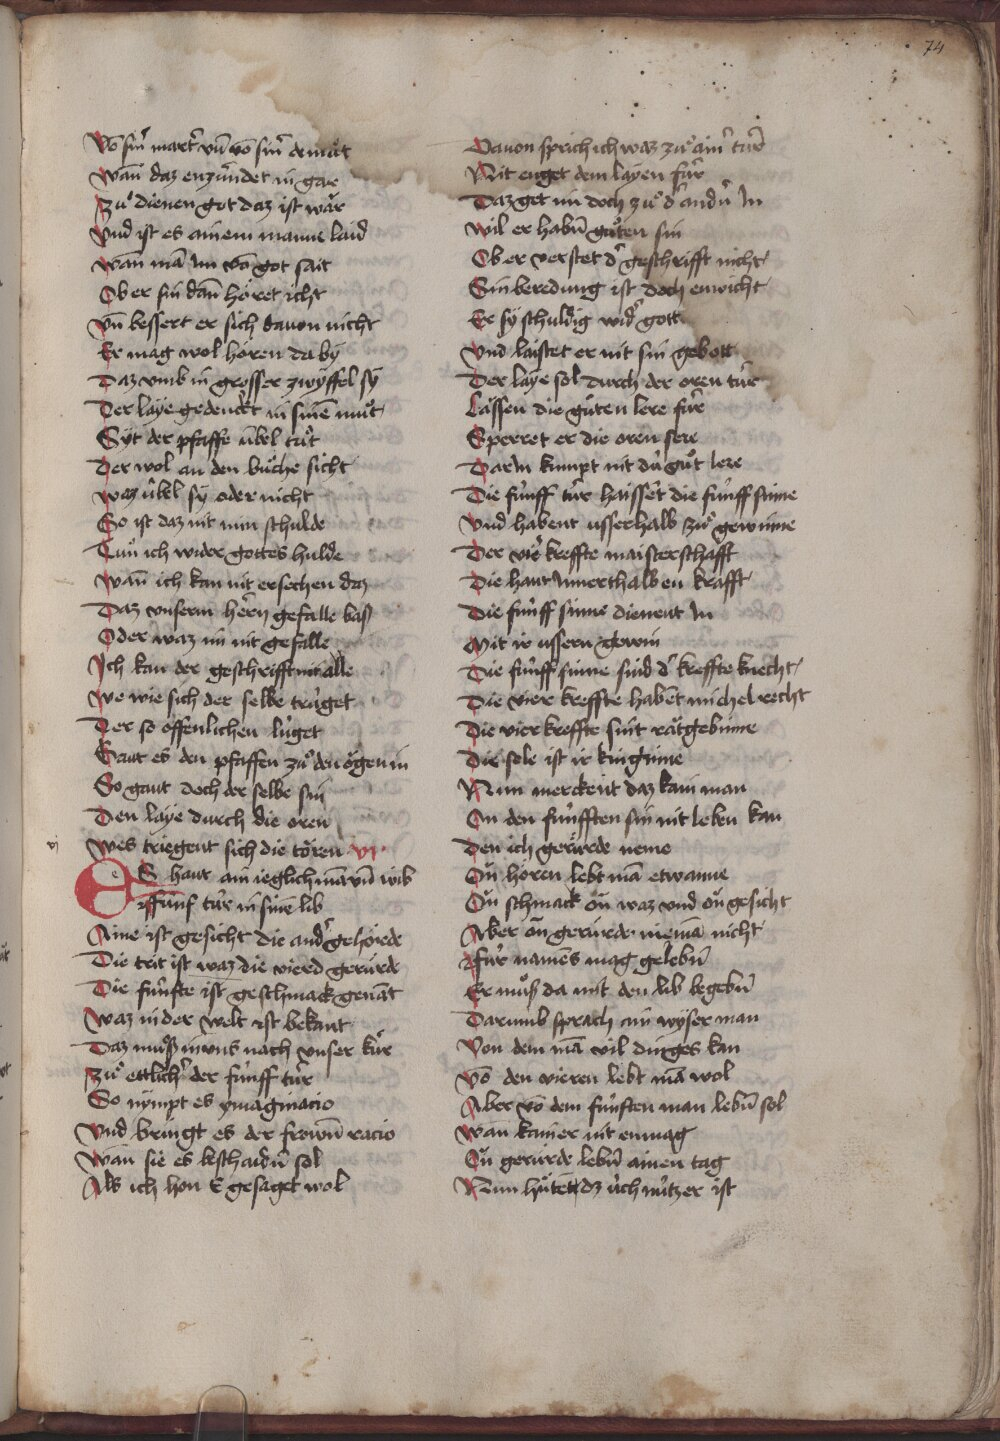 74
Vō sinr̄ martr̄ vn̄ vō sinr̄ demuͤt
Wan̄ daz enzündet in gar
Zuͦ dienen got daz ist wār
Vnd ist es ainem manne laid
Wan̄ mā Im vō got sait
Ob er sin dan̄ hoͤret icht
Vn̄ bessert er sich dauon nicht
Er mag wol hoͤren da by
Daz vmb in grosser zwyffel sy
Der laye gedenckt in sinē muͦt
Syt der pfaffe übel tuͦt
Der wol an den buͦche sicht
Waz übel sy oder nicht
So ist daz nit min schulde
Tuͦn ich wider gottes hulde
Wan̄ ich kan nit ersechen daz
Daz vnserm herrn gefalle bass
Oder waz im nit gefalle
Ich kan der geschrifft nit alle
We wie sich der selbe trüget
Der so offenlichen lüget
Gaut es den pfaffen zuͦ den ögen in
So gaut doch der selbe sin
Den laye durch die oren
Wes triegent sich die toren VI
vj
ES haut ain ieglich mā vn̄ wib
iffünf tür in sinē lib
Aine ist gesicht die andr̄ gehörde
Die trit ist waz die vierd gerürde
Die fünfte ist geschmack genāt
Waz in der welt ist bekant
Daz muͦss in vns nach vnser kür
Zuͦ ettlichr̄ der fünff tür
So nympt es ymaginacio
Vnd bringt es der frowen̄ racio
Wan sie es beschaiden̄ sol
Als ich hon E gesaget wol
Dauon sprich ich waz zuͦ ainr̄ tür
Nit enget dem layen für
Daz get im doch zuͦ dr̄ andn̄ In
Wil er haben̄ guͦten sin
Ob er verstet dr̄ geschrifft nicht
Sin beredung ist doch enwicht
Er sy schuldig widr̄ gott
Vnd laistet er nit sin gebott
Der laye sol durch der oren tür
Lāssen die guͦten lere für
Sperret er die oren sere
Dar In kumpt nit dü guͦt lere
Die fünff tür haisset die fünff sinne
Vnd habent usserhalb zuͦ gewinne
Der vier kreffte maisterschafft
Die haut Innerthalb en krafft
Die fünff sinne dienent In
Mit ir ussern gewin
Die fünff sinne sind dr̄ kreffte knecht
Die vier kreffte habēt michel recht
Die vier kreffte sint rātgebinne
Die sele ist ir küniginne
Nun merckent daz kain man
On den fünfften sin nit leben kan
Den ich gerürde neme
On̄ hören lebt mā etwanne
On̄ schmack on̄ waz vnd on̄ gesicht
Aber on̄ gerürde niemā nicht
Für namēs mag geleben̄
Er muͦss da mit den lib begeben̄
Darumb sprach ain wyser man
Von dem mā vil dinges kan
Vō den vieren lebt mā wol
Aber vō dem fünften man leben̄ sol
Wan kainer nit enmag
On̄ gerürde leben̄ ainen tag
Nun huͦtent dz üch nützer ist